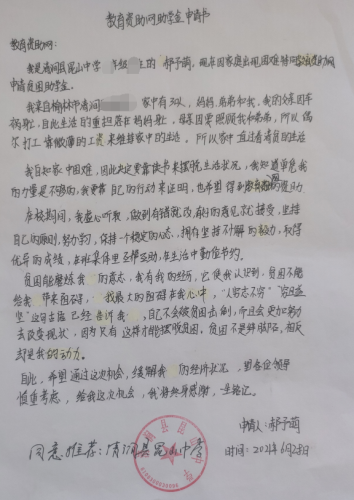 教育资助网助学金申请书
教育资助网:
我是清涧县昆山中学 年级 的郝子萌,现在因家庭出现困难特向教育资助网
申请贫困助学金。
我来自榆林市清涧 家中有三人,妈妈、弟弟和我,我的父亲因车
祸身亡,自此生活的重担落在妈妈身上,母亲因要照顾我和弟弟,所以偶
尔打工 靠微薄的工资来维持家中的生活。所以家中一直过着清贫的生活
我自知家中困难,因此决定要靠读书来摆脱生活状况,我知道单凭我
的力量是不够的,我要靠自己的行动来证明,也希望得到 的资助
在校期间,我虚心听教,做到有错就改,有好的意见就接受,坚持
自己的原则,努力学习,保持一个稳定的心态,拥有坚持不懈的毅力,取得
优异的成绩,在班集体里乐帮互助,在生活中勤俭节约。
贫困能磨炼我 的意志,我有我的经历,它使我认识到,贫困不能
给我 带来阻碍, 我最大的阻碍在我心中, "人穷志不穷" "穷且益
坚"这句古话 已经告诉我 ,自己不会被贫困击倒,而应会更加努力
去改变现状,因为只有这样才能摆脱贫困,贫困不是绊脚石,相反
却是我的动力。
因此,希望通过这次机会,缓解我 的经济状况,望各位领导
慎重考虑,给我这次机会,我将终身感谢,一生铭记。
申请人:郝子萌
同意推荐:清涧县昆山中学
时间:2021年6月28日